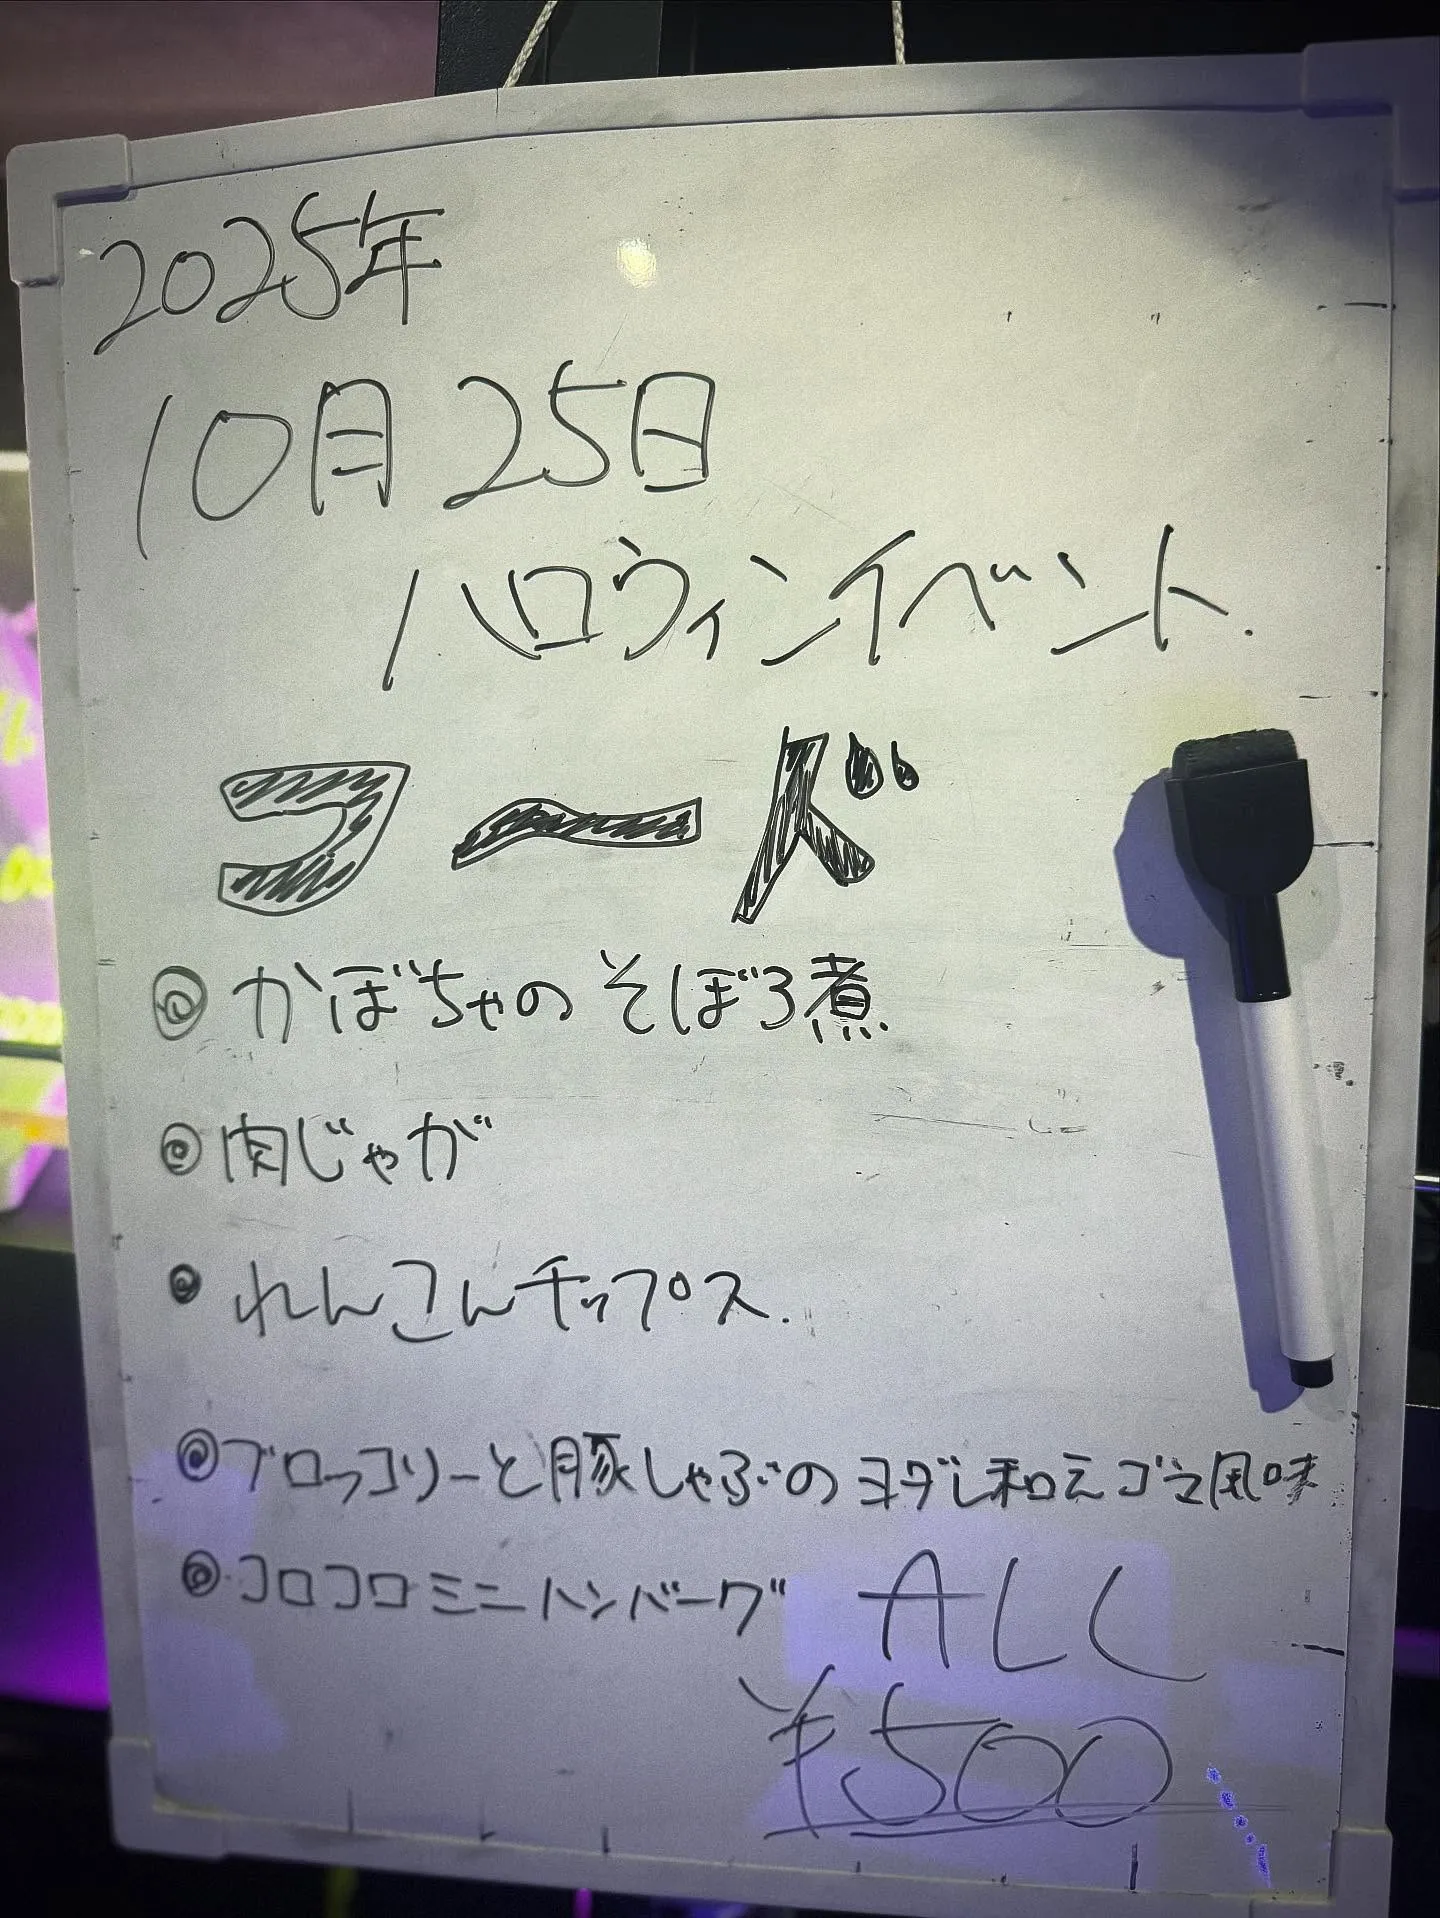 2025年
10月25日
ハロウィンイベント.
フード
◎かぼちゃのそぼろ煮
◎肉じゃが
●れんこんチップス.
◎ブロッコリーと豚しゃぶのヨダレ和えゴマ風味
◎コロコロミニハンバーグ
ALL
¥500